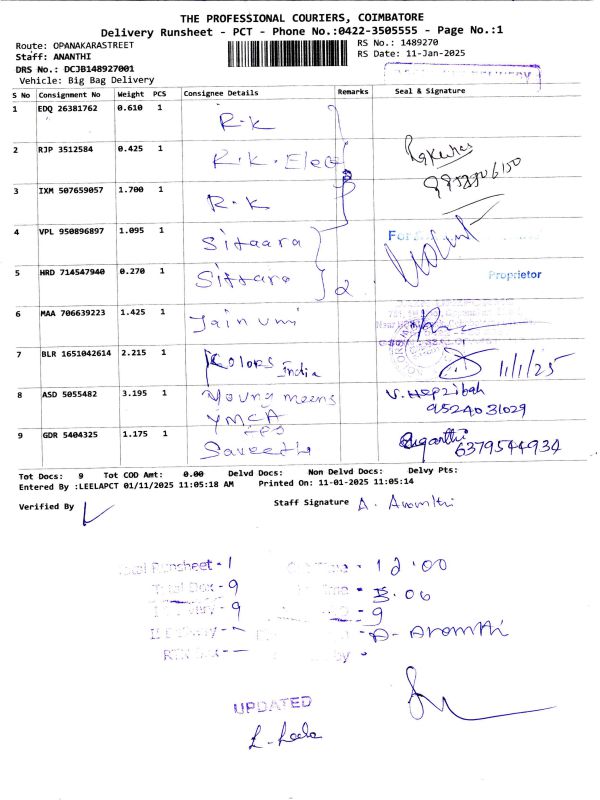 THE PROFESSIONAL COURIERS, COIMBATORE
Delivery Runsheet - PCT - Phone No.:0422-3505555 - Page No.:1
Route: OPANAKARASTREET
RS No.: 1489270
Staff: ANANTHI
RS Date: 11-Jan-2025
DRS No.: DCJB148927001
Vehicle: Big Bag Delivery
S No Consignment No Weight PCS Consignee Details Remarks Seal & Signature
1 EDQ 26381762 0.610 1 R.K
2 RJP 3512584 0.425 1 R.K. Elec
3 IXM 507659057 1.700 1 R.K
4 VPL 950896897 1.095 1 Sitaara For
5 HRD 714547940 0.270 1 Sittara 2 Proprietor
6 MAA 706639223 1.425 1 Jain umi
7 BLR 1651042614 2.215 1 Kolors India 11/1/25
8 ASD 5055482 3.195 1 Young meens V. Hepzibah
YMCA 9524031029
9 GDR 5404325 1.175 1 Saveetha Suganthi
6379544934
Tot Docs: 9 Tot COD Amt: 0.00 Delvd Docs: Non Delvd Docs: Delvy Pts:
Entered By :LEELAPCT 01/11/2025 11:05:18 AM Printed On: 11-01-2025 11:05:14
Verified By
Staff Signature A. Aromthi
Total Runsheet - 1 Time - 12.00
Total Dox - 9 Time - 3.06
- 9 - 9
- A- Aromthi
UPDATED
L. Leela